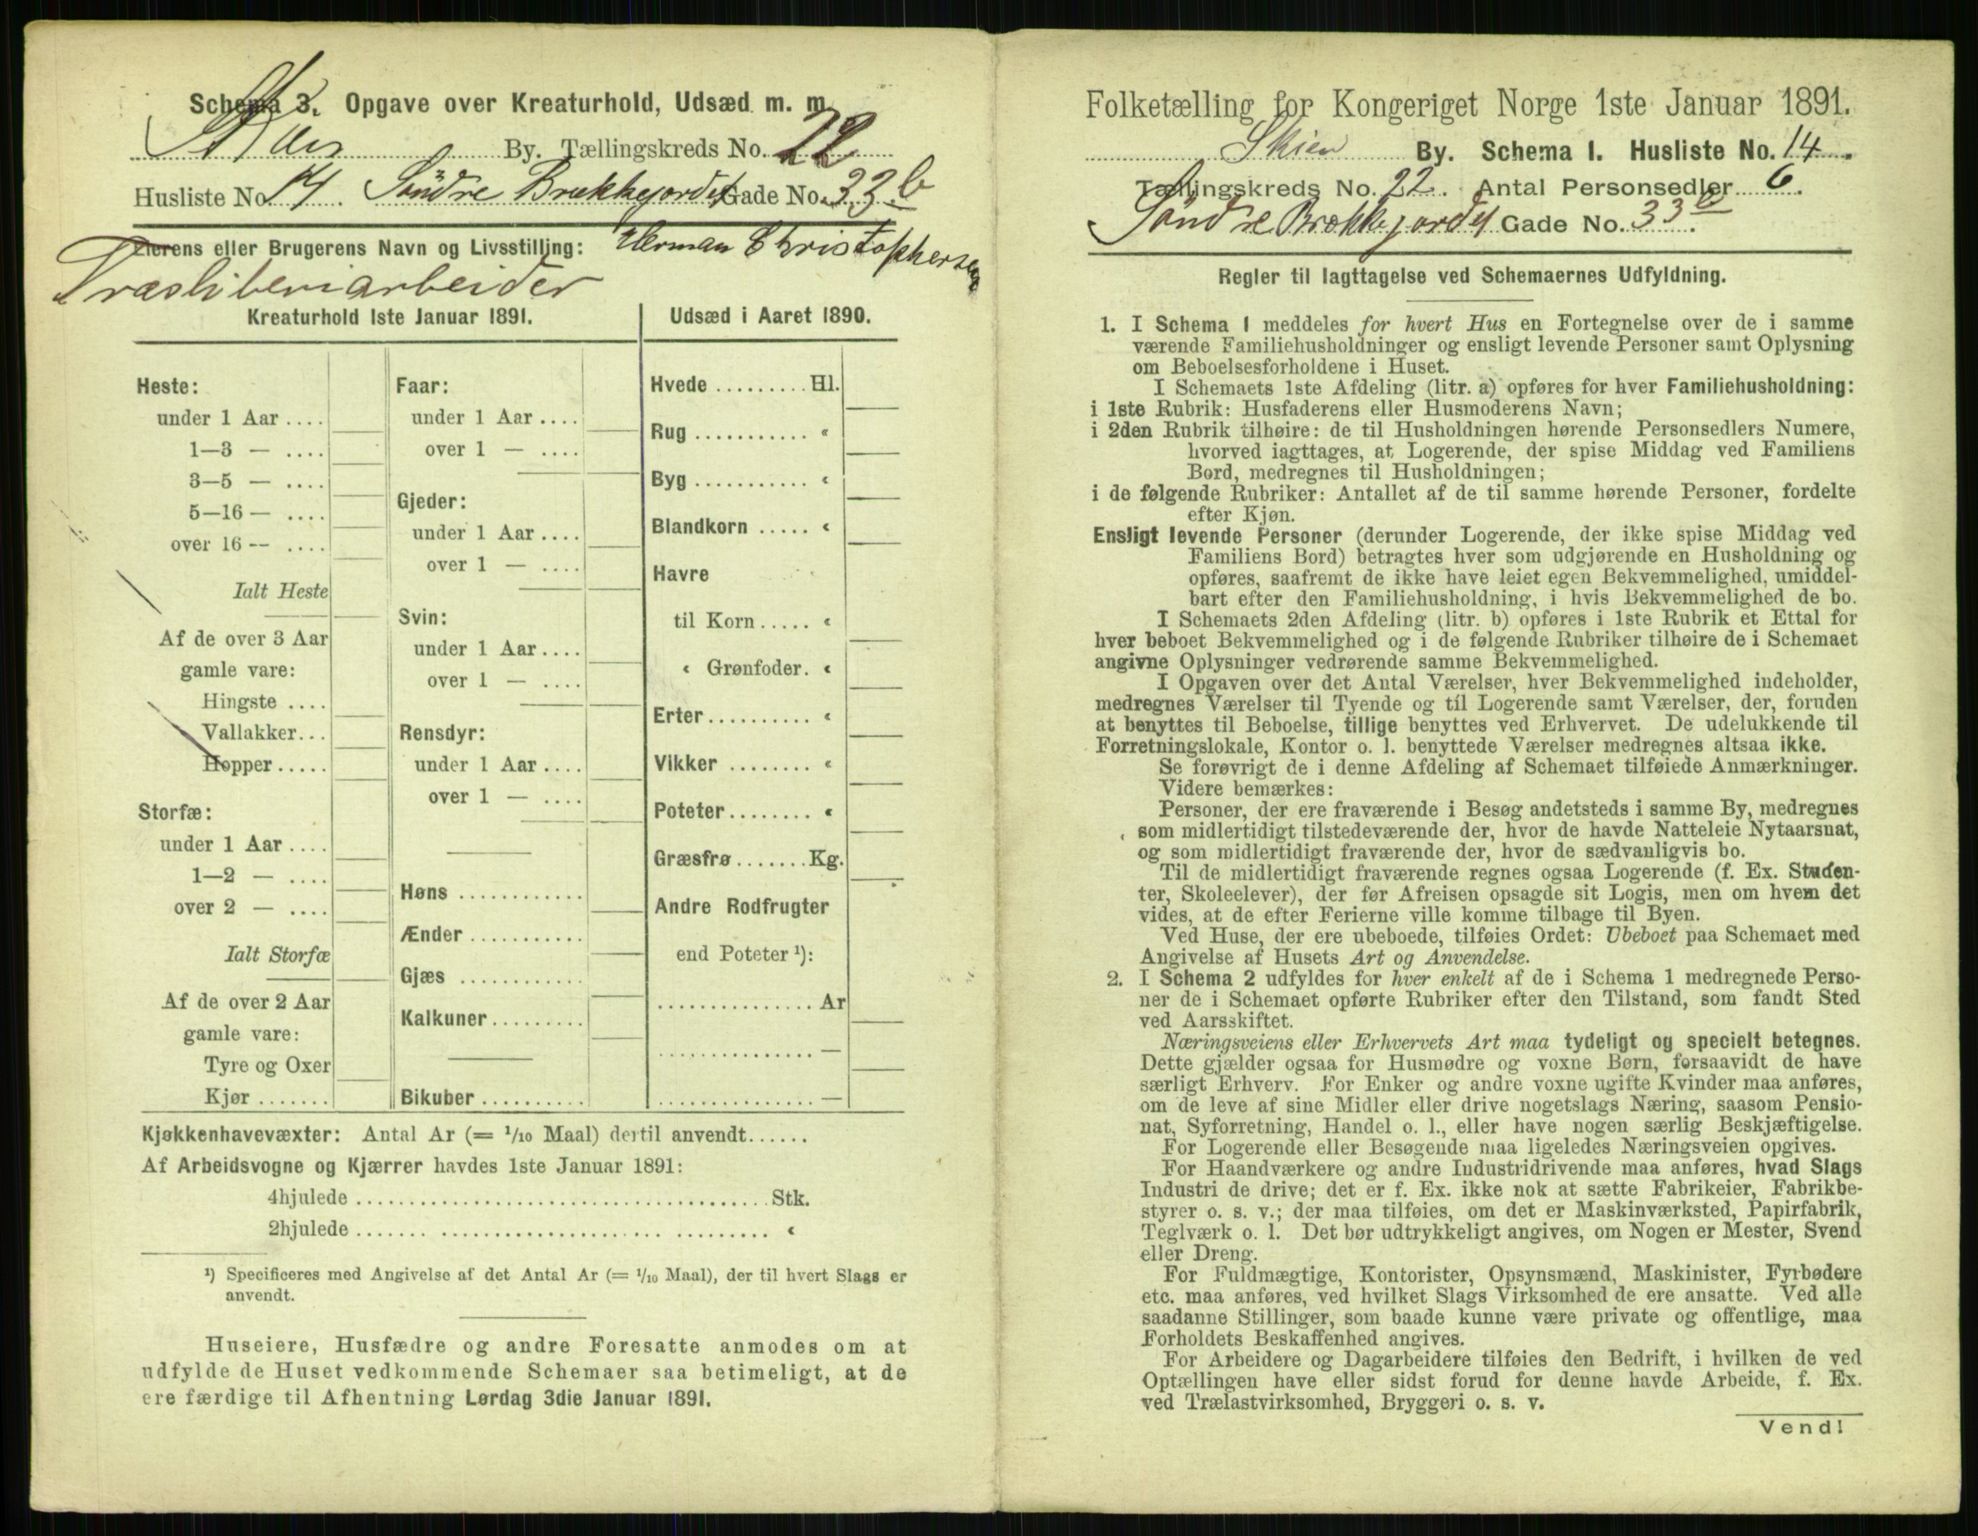 Schema 3. Opgave over Kreaturhold, Udsæd m. m.
Skien By. Tællingskreds No. 22
Husliste No. 14. Söndre Brækkejordet Gade No. 33 b
Eierens eller Brugerens Navn og Livsstilling: Herman Christophersen
Træsliberiarbeider
Kreaturhold 1ste Januar 1891.
Heste:
under 1 Aar ....
1—3 — ....
3—5 — ....
5—16 — ....
over 16 — ....
Ialt Heste
Af de over 3 Aar
gamle vare:
Hingste ....
Vallakker...
Hopper .....
Storfæ:
under 1 Aar ....
1—2 — ....
over 2 — ....
Ialt Storfæ
Af de over 2 Aar
gamle vare:
Tyre og Oxer
Kjør .......
Faar:
under 1 Aar ....
over 1 — ....
Gjeder:
under 1 Aar ....
over 1 — ....
Svin:
under 1 Aar ....
over 1 — ....
Rensdyr:
under 1 Aar ....
over 1 — ....
Høns ............
Ænder ...........
Gjæs ............
Kalkuner.........
Bikuber ..........
Udsæd i Aaret 1890.
Hvede ......... Hl.
Rug ........... «
Byg ........... «
Blandkorn ..... «
Havre
til Korn ..... «
« Grønfoder. «
Erter.......... «
Vikker ........ «
Poteter........ «
Græsfrø ....... Kg.
Andre Rodfrugter
end Poteter ¹):
............... Ar
............... —
............... —
Kjøkkenhavevæxter: Antal Ar (= 1/10 Maal) dertil anvendt......
Af Arbeidsvogne og Kjærrer havdes 1ste Januar 1891:
4hjulede ....................................... Stk.
2hjulede ....... ..................... ......... «
¹) Specificeres med Angivelse af det Antal Ar (= 1/10 Maal), der til hvert Slags er
anvendt.
Huseiere, Husfædre og andre Foresatte anmodes om at
udfylde de Huset vedkommende Schemaer saa betimeligt, at de
ere færdige til Afhentning Lørdag 3die Januar 1891.
Folketælling for Kongeriget Norge 1ste Januar 1891.
Skien By. Schema I. Husliste No. 14.
Tællingskreds No. 22. Antal Personsedler 6.
Söndre Brækkejordet Gade No. 33 b.
Regler til Iagttagelse ved Schemaernes Udfyldning.
1. I Schema 1 meddeles for hvert Hus en Fortegnelse over de i samme
værende Familiehusholdninger og ensligt levende Personer samt Oplysning
om Beboelsesforholdene i Huset.
I Schemaets 1ste Afdeling (litr. a) opføres for hver Familiehusholdning:
i 1ste Rubrik: Husfaderens eller Husmoderens Navn;
i 2den Rubrik tilhøire: de til Husholdningen hørende Personsedlers Numere,
hvorved iagttages, at Logerende, der spise Middag ved Familiens
Bord, medregnes til Husholdningen;
i de følgende Rubriker: Antallet af de til samme hørende Personer, fordelte
efter Kjøn.
Ensligt levende Personer (derunder Logerende, der ikke spise Middag ved
Familiens Bord) betragtes hver som udgjørende en Husholdning og
opføres, saafremt de ikke have leiet egen Bekvemmelighed, umiddel-
bart efter den Familiehusholdning, i hvis Bekvemmelighed de bo.
I Schemaets 2den Afdeling (litr. b) opføres i 1ste Rubrik et Ettal for
hver beboet Bekvemmelighed og i de følgende Rubriker tilhøire de i Schemaet
angivne Oplysninger vedrørende samme Bekvemmelighed.
I Opgaven over det Antal Værelser, hver Bekvemmelighed indeholder,
medregnes Værelser til Tyende og til Logerende samt Værelser, der, foruden
at benyttes til Beboelse, tillige benyttes ved Erhvervet. De udelukkende til
Forretningslokale, Kontor o. l. benyttede Værelser medregnes altsaa ikke.
Se forøvrigt de i denne Afdeling af Schemaet tilføiede Anmærkninger.
Videre bemærkes:
Personer, der ere fraværende i Besøg andetsteds i samme By, medregnes
som midlertidigt tilstedeværende der, hvor de havde Natteleie Nytaarsnat,
og som midlertidigt fraværende der, hvor de sædvanligvis bo.
Til de midlertidigt fraværende regnes ogsaa Logerende (f. Ex. Studen-
ter, Skoleelever), der før Afreisen opsagde sit Logis, men om hvem det
vides, at de efter Ferierne ville komme tilbage til Byen.
Ved Huse, der ere ubeboede, tilføies Ordet: Ubeboet paa Schemaet med
Angivelse af Husets Art og Anvendelse.
2. I Schema 2 udfyldes for hver enkelt af de i Schema 1 medregnede Perso-
ner de i Schemaet opførte Rubriker efter den Tilstand, som fandt Sted
ved Aarsskiftet.
Næringsveiens eller Erhvervets Art maa tydeligt og specielt betegnes.
Dette gjælder ogsaa for Husmødre og voxne Børn, forsaavidt de have
særligt Erhverv. For Enker og andre voxne ugifte Kvinder maa anføres,
om de leve af sine Midler eller drive nogetslags Næring, saasom Pensio-
nat, Syforretning, Handel o. l., eller have nogen særlig Beskjæftigelse.
For Logerende eller Besøgende maa ligeledes Næringsveien opgives.
For Haandværkere og andre Industridrivende maa anføres, hvad Slags
Industri de drive; det er f. Ex. ikke nok at sætte Fabrikeier, Fabrikbe-
styrer o. s. v.; der maa tilføies, om det er Maskinværksted, Papirfabrik,
Teglværk o. l. Det bør udtrykkeligt angives, om Nogen er Mester, Svend
eller Dreng.
For Fuldmægtige, Kontorister, Opsynsmænd, Maskinister, Fyrbødere
etc. maa anføres, ved hvilket Slags Virksomhed de ere ansatte. Ved alle
saadanne Stillinger, som baade kunne være private og offentlige, maa
Forholdets Beskaffenhed angives.
For Arbeidere og Dagarbeidere tilføies den Bedrift, i hvilken de ved
Optællingen have eller sidst forud for denne havde Arbeide, f. Ex.
ved Trælastvirksomhed, Bryggeri o. s. v.
Vend!